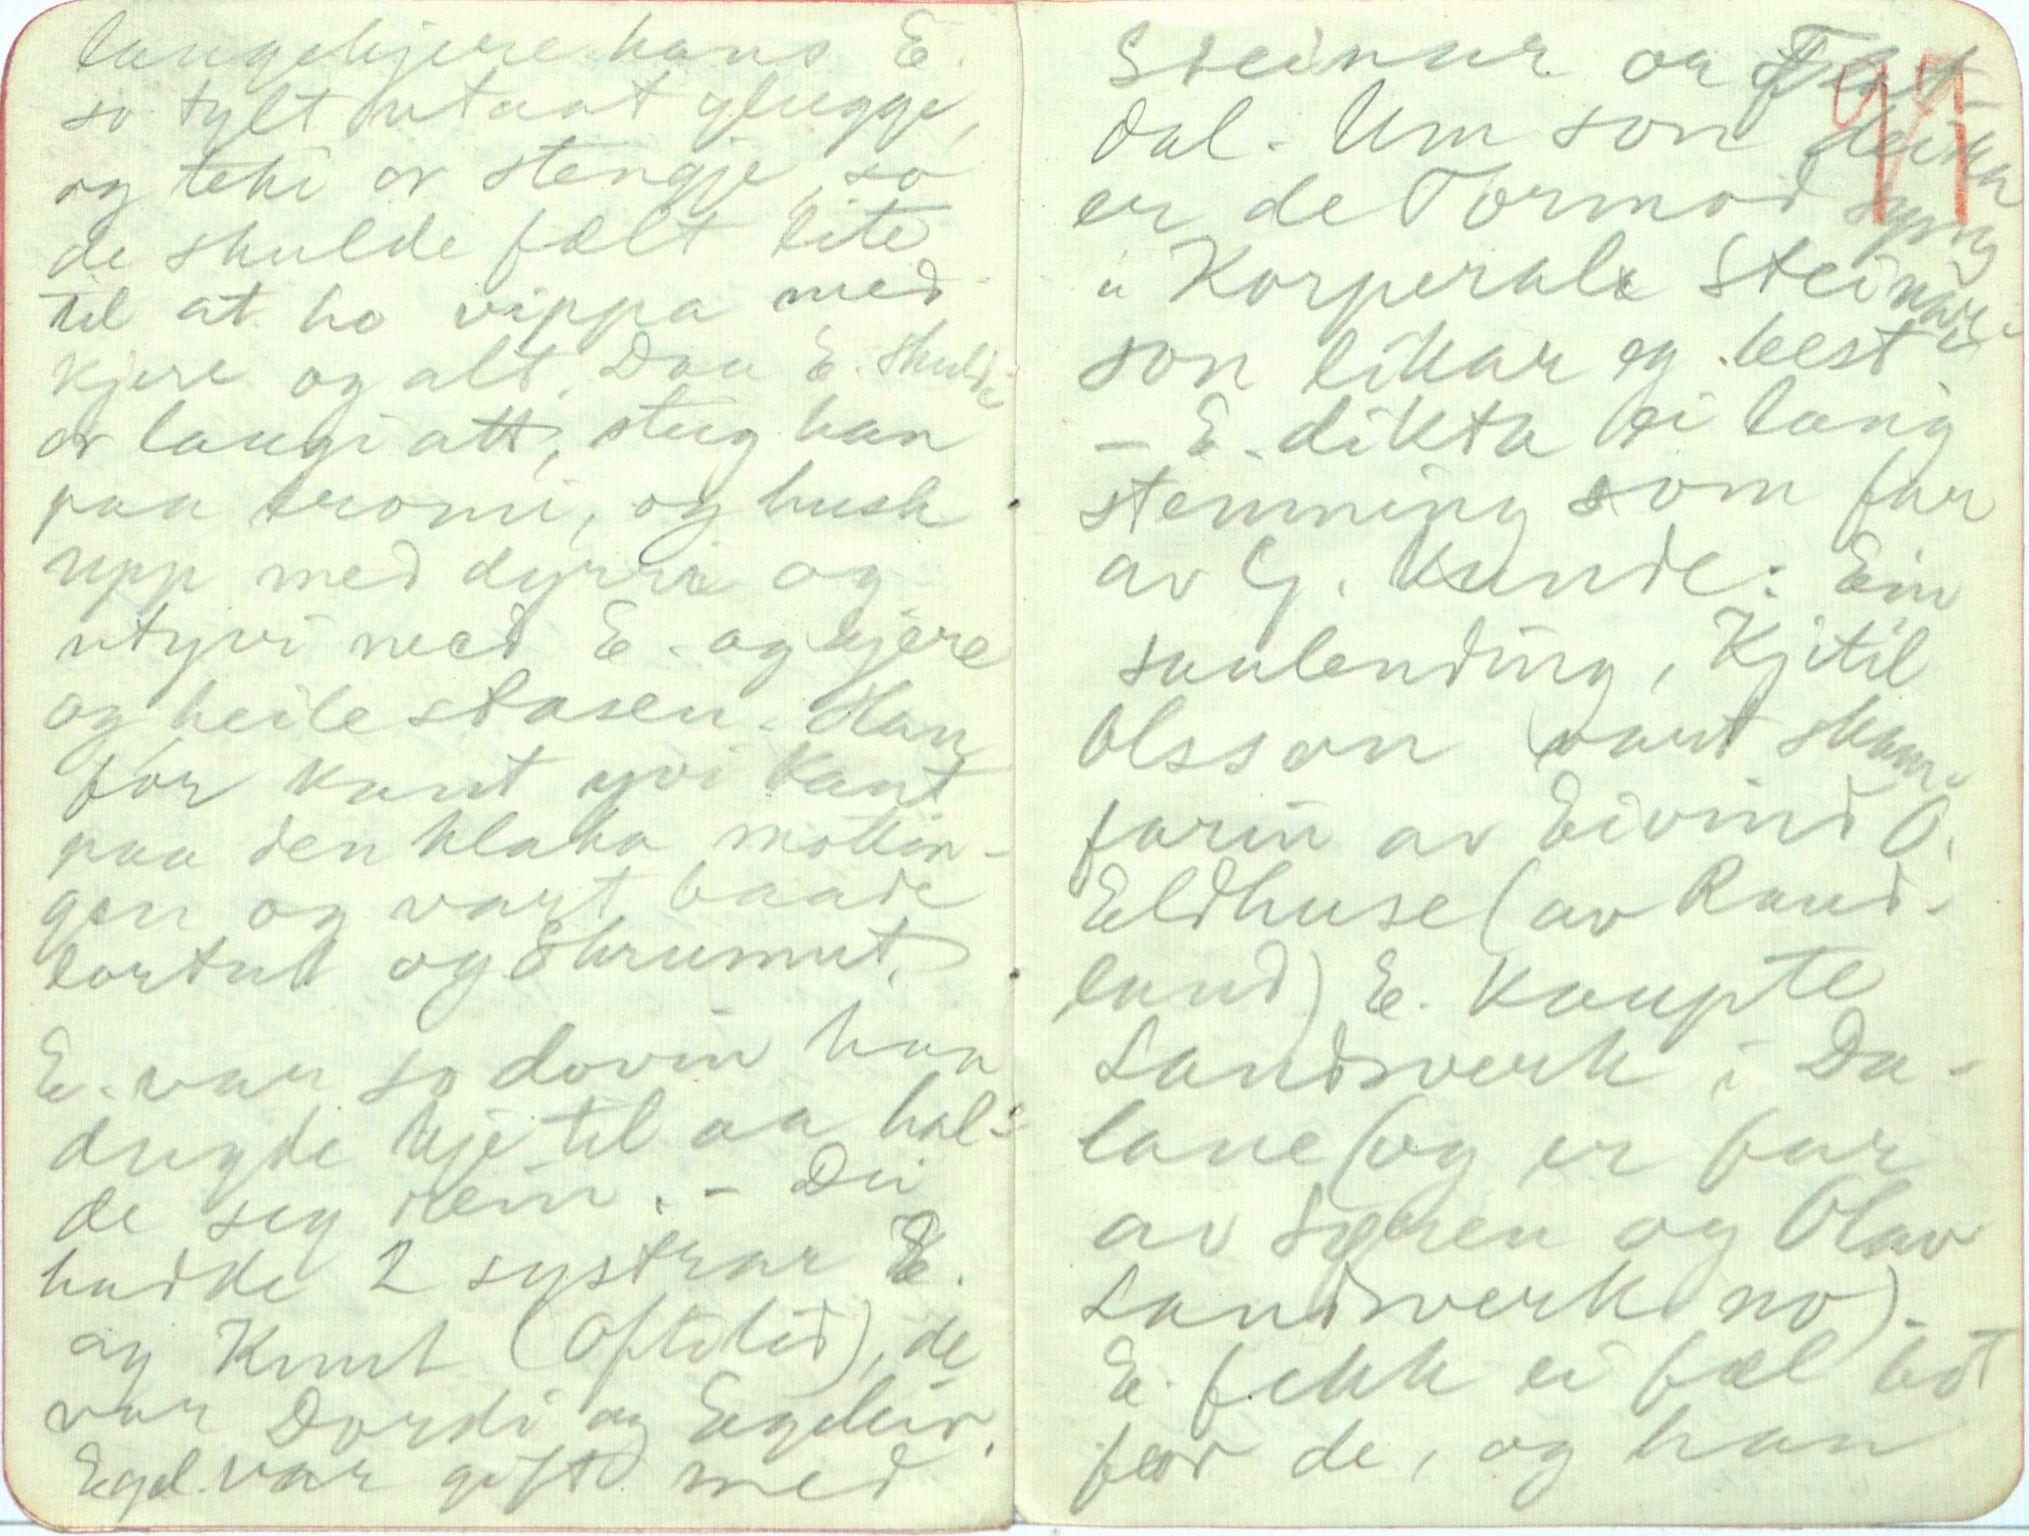 laugekjere hans E.
so tylt utaat glugge,
og teki or stengje, so
de skulde fælt lite
til at ho vippa med
kjere og alt. Daa E. skulde
or laugi att, steig han
paa tromi, og husk
upp med dyrri og
utyvi med E. og kjere
og heile stasen. Han
for kant yvi kant
paa den klaka mottin-
gen og vart baade
lortut og skrumut.
E. var so dovin han
dugde kje til aa hal-
de seg rein. - Dei
hadde 2 systrar E.
og Knut (Oftelid), de
var Dordi og Egeleiv.
Egel. var gift med
Steinar or Flat-
dal. Um son deira
er de Tormod syng
"Korperale Steinars-
son likar eg best"
- E. dikta ei lang
stemning som far
av G. Kunde: Ein
saulending, Kjetil
Olsson vart skam-
farin av Eivind O.
Eldhuse (av Raud-
land) E. kaupte
Landsverk i Da-
lane (og er far
av Søren og Olav
Landsverk no).
E. fekk ei fæl bot
for de, og han
91